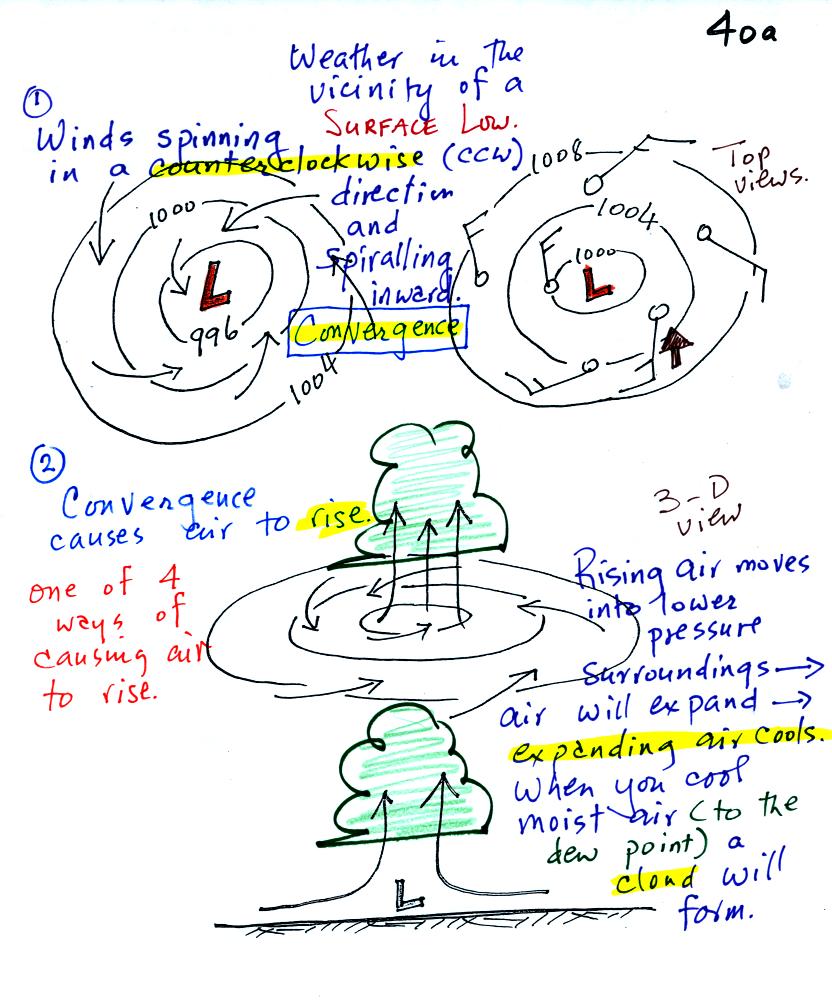 40a
Weather in the
vicinity of a
SURFACE LOW.
①
Winds spinning
in a counterclockwise (CCW)
direction
and
spiralling
inward.
Convergence
1000
L
996
1004
1008
Top
views.
1004
1000
L
②
Convergence
causes air to rise.
one of 4
ways of
causing air
to rise.
3-D
view
Rising air moves
into lower
pressure
surroundings →
air will expand →
expanding air cools.
When you cool
moist air (to the
dew point) a
cloud will
form.
L